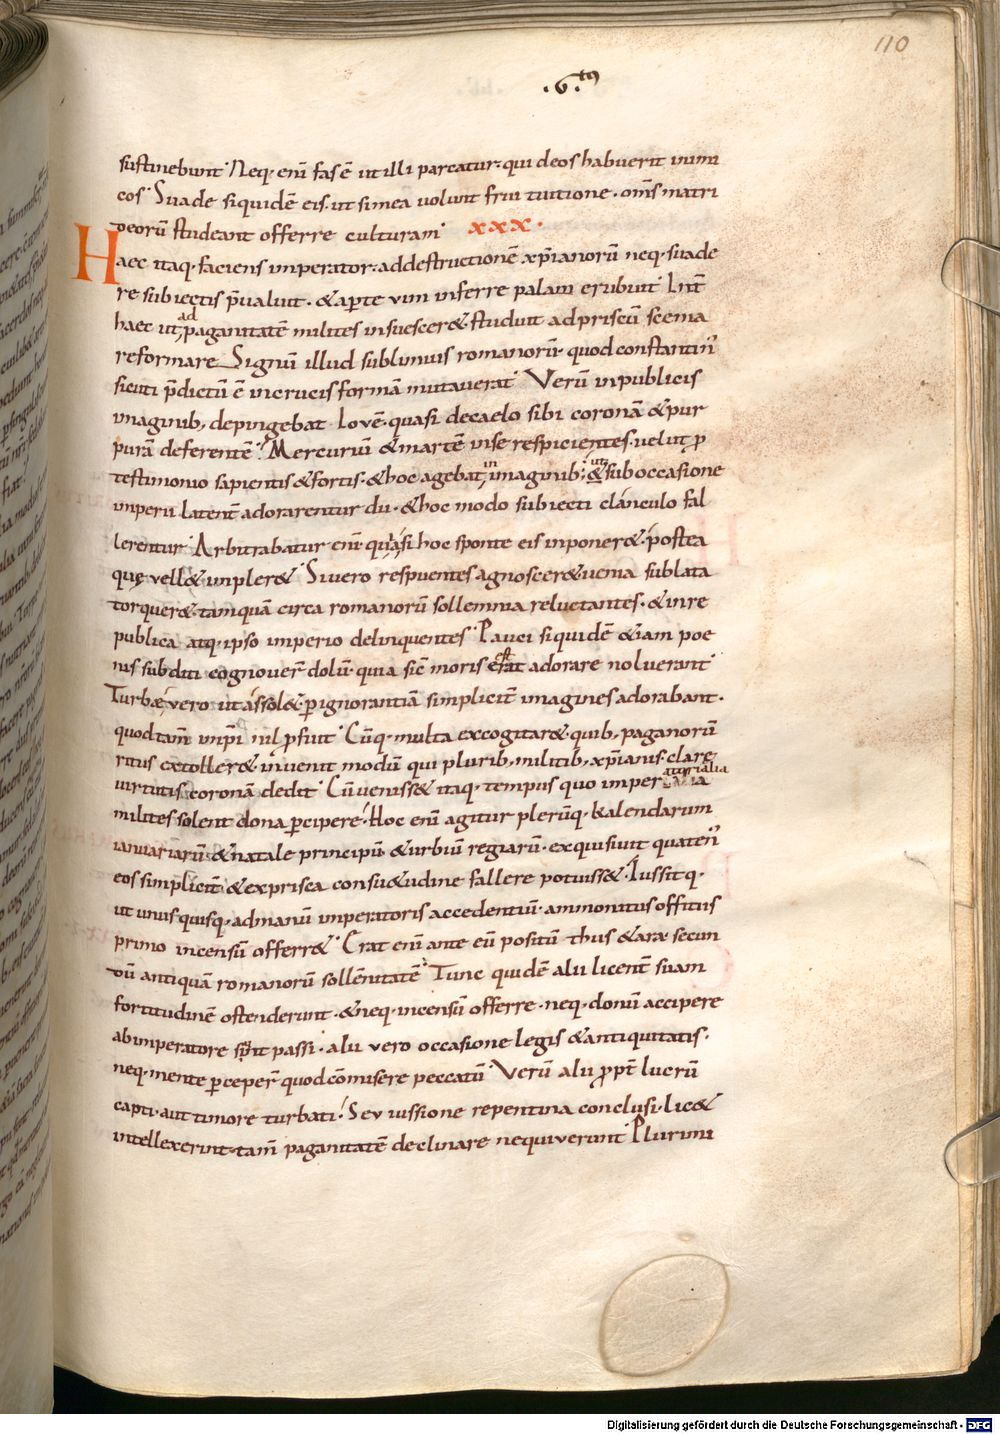 110
.6.tus
sustinebunt. Neq. eni fas ē ut illi parcatur. qui deos habuerit inimi
cos. Suade siquidē eis. ut si mea volunt frui tuitione. oms matri
deorū studeant offerre culturam. xxx.
Haec itaq. faciens imperator. ad destructionē xp̄ianorū neq. suade
re subiectis p̄valuit. & aperte vim inferre palam erubuit. Int̄
haec ut ad paganitatē milites insuescer& studuit ad priscū scema
reformare. Signū illud sublimius romanorū quod constantin᾿
sicuti p̄dictū ē in crucis formā mutaverat. Verū in publicis
imaginib, depingebat Iovē. quasi de caelo sibi coronā & pur
purā deferentē. Mercuriū & martē in se respicientes. velut p
testimonio sapientis & fortis. & hoc agebat in imaginib; ut sub occasione
imperii latent adorarentur dii. & hoc modo subiecti clanculo fal
lerentur. Arbitrabatur eni quasi hoc sponte eis inponer&. postea
quę vell& impler&. Si vero respuentes agnoscer& venia sublata
torquer& tamquā circa romanorū sollemnia reluctantes. & in re
publica atq. ipso imperio delinquentes. Pauci siquidē & iam poe
nis subditi cognover̄ dolū. quia sic moris est adorare noluerant.
Turbæ vero ut assol& p ignorantiā simplicit̄ imagines adorabant.
quod tam̄ impi nil pfuit. Cūq. multa excogitar& quib, paganorū
ritus extoller& invenit modū qui plurib, militib, xp̄ianis clare
virtutis coronā dedit. Cū veniss& itaq. tempus quo imperatorialia
milites solent dona pcipere. Hoc eni agitur plerūq. kalendarum
ianuariarū & natale principū & urbiū regiarū. exquisivit quaten᾿
eos simplicit̄ & ex prisca consu&udine fallere potuiss&. Iussitq.
ut unus quisq. ad manū imperatoris accedentiū. ammonitus offitiis
primo incensū offerr&. Erat eni ante eū positū thus & ara secun
dū antiquā romanorū sollēnitatē. Tunc quidē alii licent̄ suam
fortitudinē ostenderunt. & neq. incensū offerre. neq. donū accipere
ab imperatore sunt passi. alii vero occasione legis & antiquitatis.
neq. mente pceper̄ quod cōmisere peccatū. Verū alii ppt̄ lucrū
capti. aut timore turbati. Seu iussione repentina conclusi. lic&
intellexerint. tam̄ paganitatē declinare nequiverunt. Plurimi
Digitalisierung gefördert durch die Deutsche Forschungsgemeinschaft - DFG